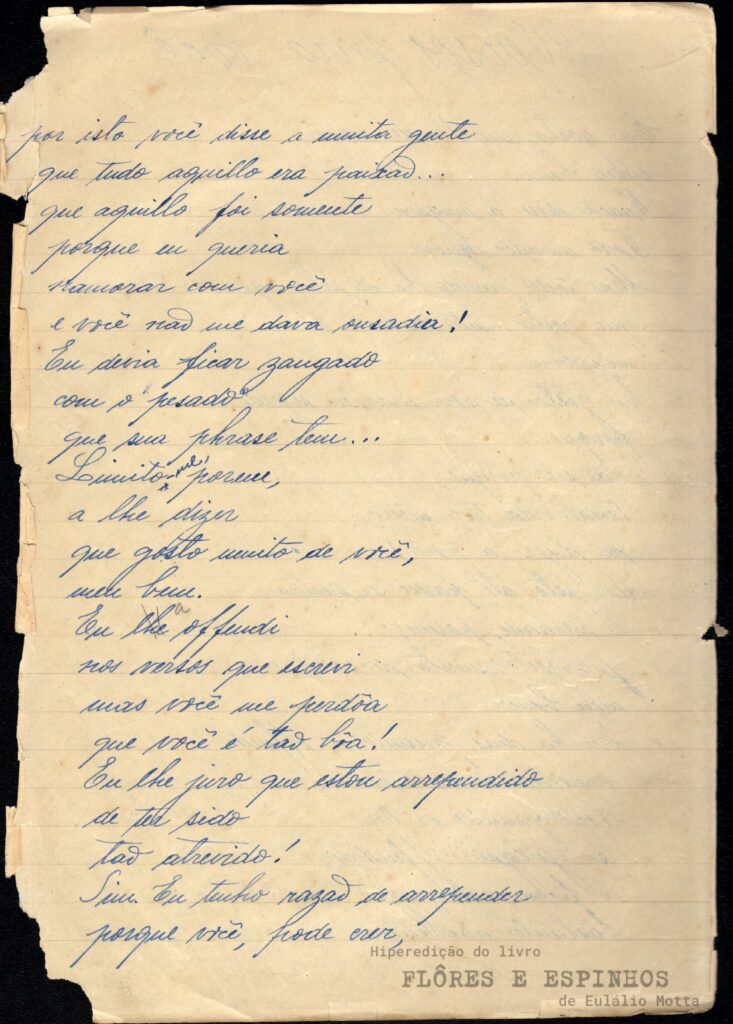 por isto você disse a muita gente
que tudo aquillo era paixaõ...
que aquillo foi somente
porque eu queria
namorar com você
e você naõ me dava ousadia!
Eu devia ficar zangado
com o "pesado"
que sua phrase tem...
Limito-me, porem,
a lhe dizer
que gosto muito de você,
meu bem.
Eu lhe a offendi
nos versos que escrevi
mas você me perdôa
que você é taõ bôa!
Eu lhe juro que estou arrependido
de ter sido
taõ atrevido!
Sim. Eu tenho razaõ de arrepender
porque você, pode crer,
Hiperedição do livro
FLÔRES E ESPINHOS
de Eulálio Motta